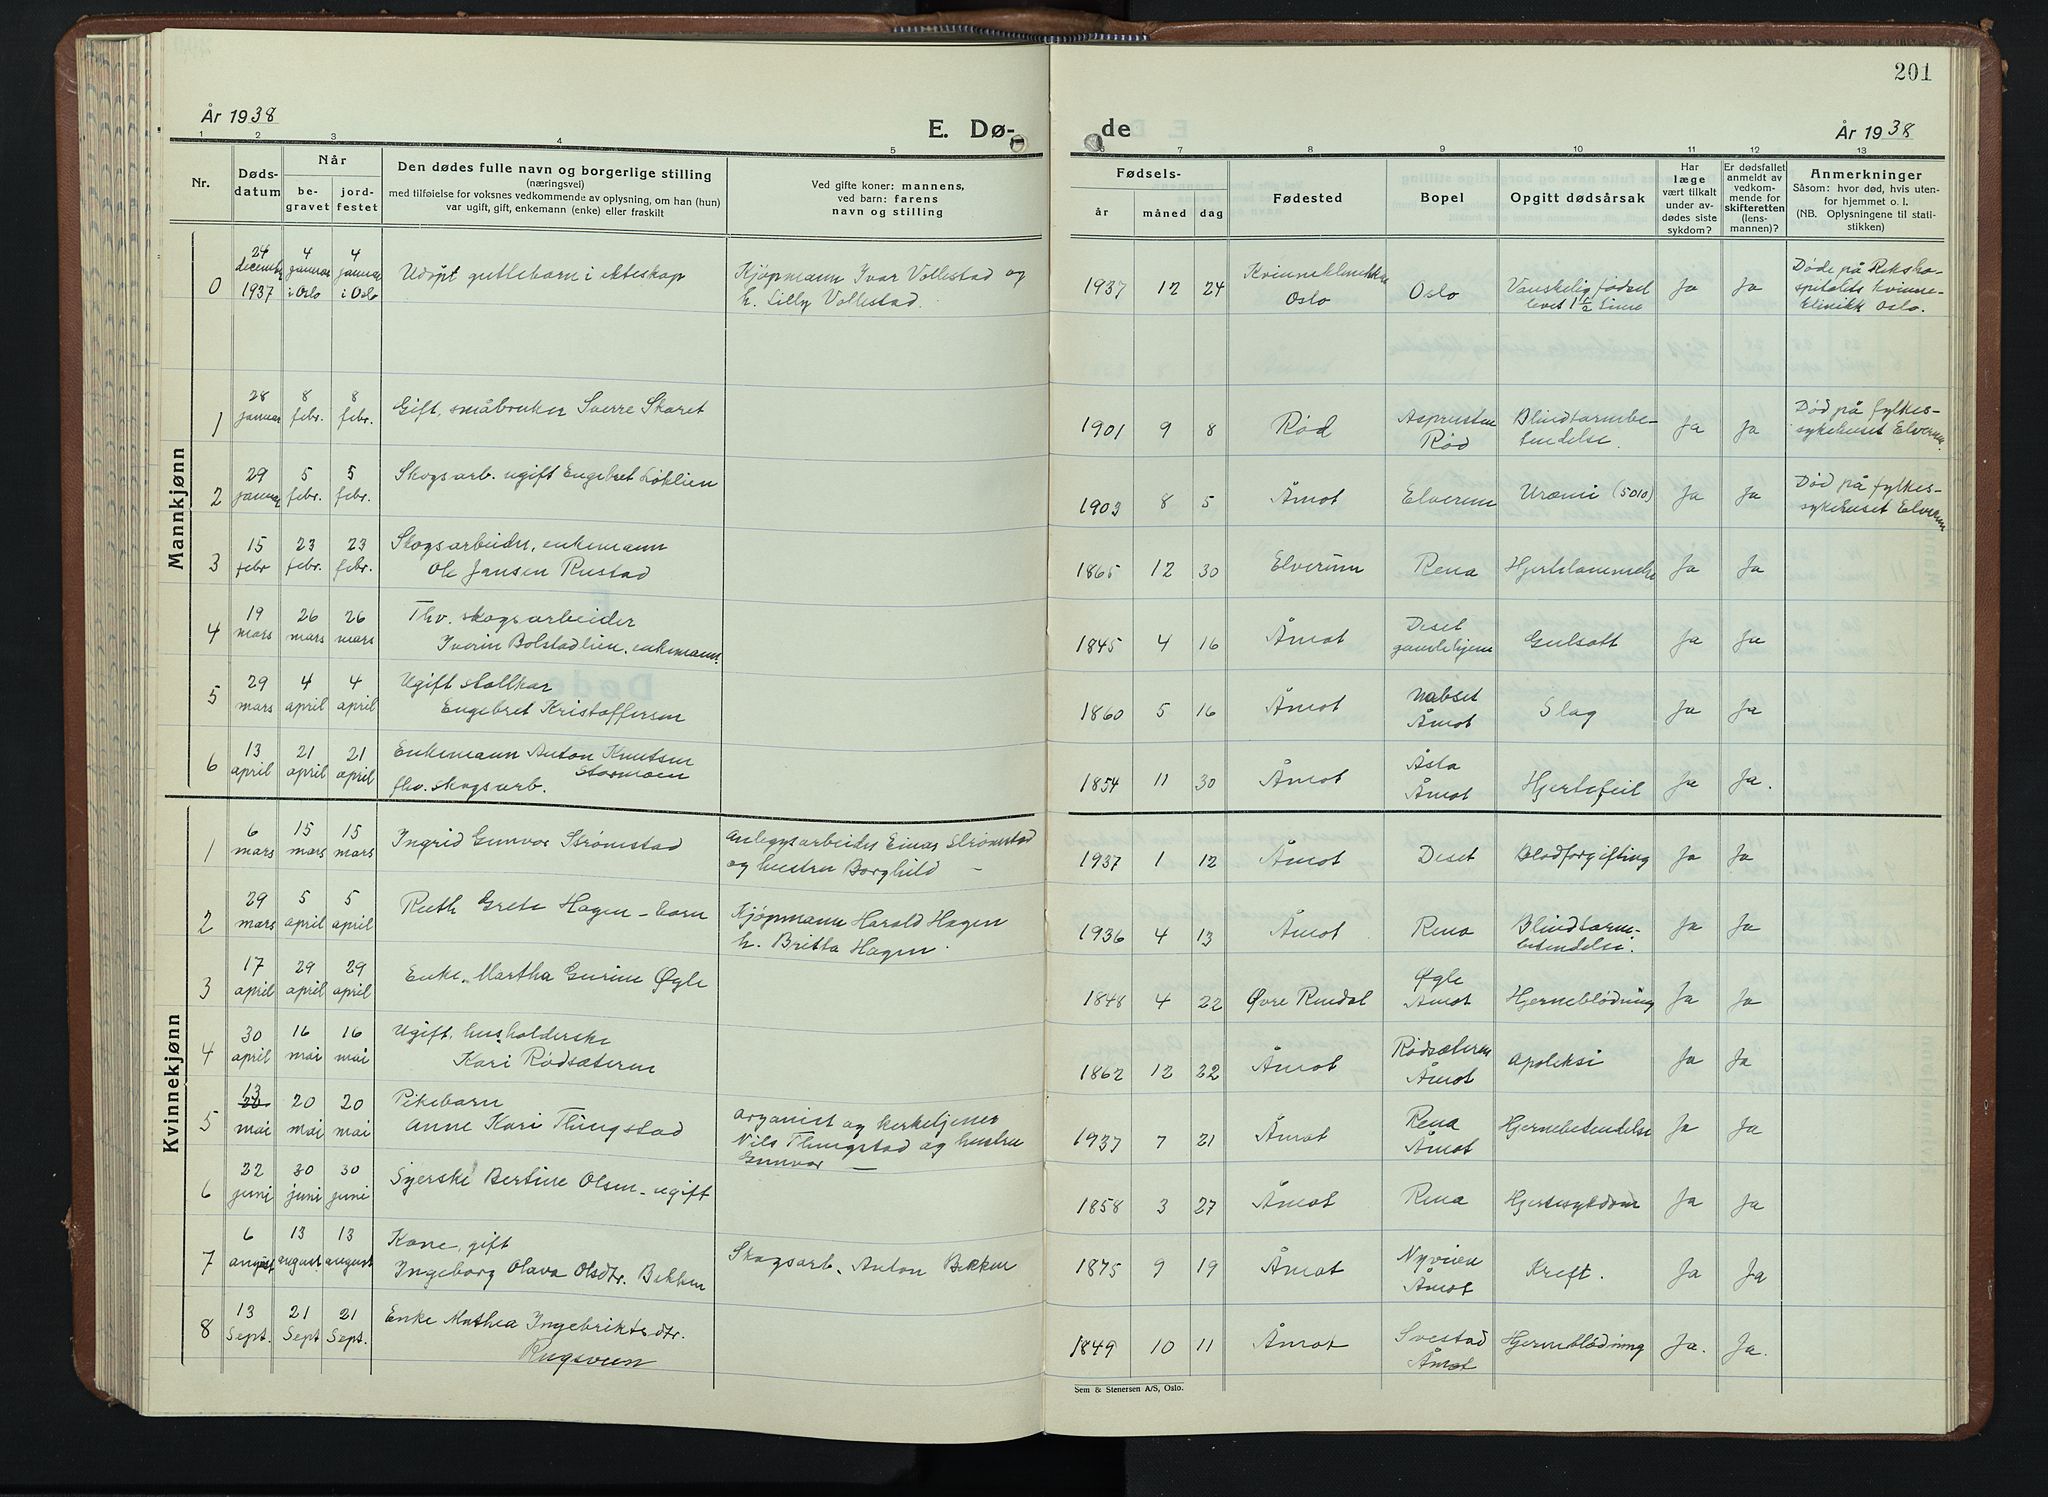 201
År 1938
E. Dø-
de
År 1938
1 2 3 4 5 6 7 8 9 10 11 12 13
Nr.
Døds-
datum
Når
be-
gravet
jord-
festet
Den dødes fulle navn og borgerlige stilling
(næringsvei)
med tilføielse for voksnes vedkommende av oplysning, om han (hun)
var ugift, gift, enkemann (enke) eller fraskilt
Ved gifte koner: mannens,
ved barn: farens
navn og stilling
Fødsels-
år måned dag
Fødested
Bopel
Opgitt dødsårsak
Har
læge
vært tilkalt
under av-
dødes siste
sykdom?
Er dødsfallet
anmeldt av
vedkom-
mende for
skifteretten
(lens-
mannen)?
Anmerkninger
Såsom: hvor død, hvis uten-
for hjemmet o. l.
(NB. Oplysningene til stati-
stikken)
Mannkjønn
0 24 decembr 1937 4 januar i Oslo 4 januar i Oslo Udøpt guttebarn i ekteskap
Kjøpmann Ivar Vollestad og
h. Lilly Vollestad.
1937 12 24 Kvinneklinikken
Oslo Oslo Vanskelig fødsel
levet 1 1/2 time Ja Ja
Døde på Riksho-
spitalets kvinne-
klinikk Oslo.
1 28 januar 8 febr. 8 febr. Gift, småbruker Sverre Skaret
1901 9 8 Rød Asprusten
Rød Blindtarmbe-
tendelse. Ja Ja Død på fylkes-
sykehuset Elverum.
2 29 januar 5 febr. 5 febr. Skogsarb. ugift Engebret Løklien
1903 8 5 Åmot Elverum Uræmi (5010) Ja Ja Død på fylkes-
sykehuset Elverum
3 15 febr 23 febr. 23 febr. Skogsarbeider, enkemann
Ole Jansen Rustad
1865 12 30 Elverum Rena Hjertelammelse Ja Ja
4 19 mars 26 mars 26 mars Fhv. skogsarbeider
Iverin Bolstadlien, enkemann.
1845 4 16 Åmot Deset
gamlehjem Gulsott Ja Ja
5 29 mars 4 april 4 april Ugift stallkar
Engebret Kristoffersen
1860 5 16 Åmot Nabset
Åmot Slag Ja Ja
6 13 april 21 april 21 april Enkemann Anton Knutsen
Stormoen
fhv. skogsarb.
1854 11 30 Åmot Åsta
Åmot Hjertefeil Ja Ja.
Kvinnekjønn
1 6 mars 15 mars 15 mars Ingrid Gunvor Strømstad
Anleggsarbeider Einar Strømstad
og hustru Borghild —
1937 1 12 Åmot Deset Blodforgifting Ja Ja
2 29 mars 5 april 5 april Ruth Grete Hagen – barn
Kjøpmann Harald Hagen
h. Britta Hagen.
1936 4 13 Åmot Rena Blindtarm-
betendelse. Ja Ja
3 17 april 29 april 29 april Enke. Martha Gurine Øgle
1848 4 22 Øvre Rendal Øgle
Åmot Hjerneblødning Ja Ja
4 30 april 16 mai 16 mai Ugift, husholderske
Kari Rødsæteren
1862 12 22 Åmot Rødsæteren
Åmot Apopleksi Ja Ja
5 13 mai 20 mai 20 mai Pikebarn
Anne Kari Thingstad
Organist og kirketjener
Nils Thingstad og hustru
Gunvor —
1937 7 21 Åmot Rena
Åmot Hjernebetendelse Ja Ja
6 22 juni 30 juni 30 juni Syerske Bertine Olsen – ugift
1858 3 27 Åmot Rena Hjertesykdom Ja Ja
7 6 august 13 august 13 august Kone, gift
Ingeborg Olava Olsdtr. Bekken
Skogsarb. Anton Bekken
1875 9 19 Åmot Nyveien
Åmot Kreft. Ja Ja
8 13 Sept. 21 Sept 21 Sept. Enke Mathea Ingebriktsdtr.
Rugsveen
1849 10 11 Åmot Svestad
Åmot Hjerneblødning Ja. Ja.
Sem & Stenersen A/S, Oslo.